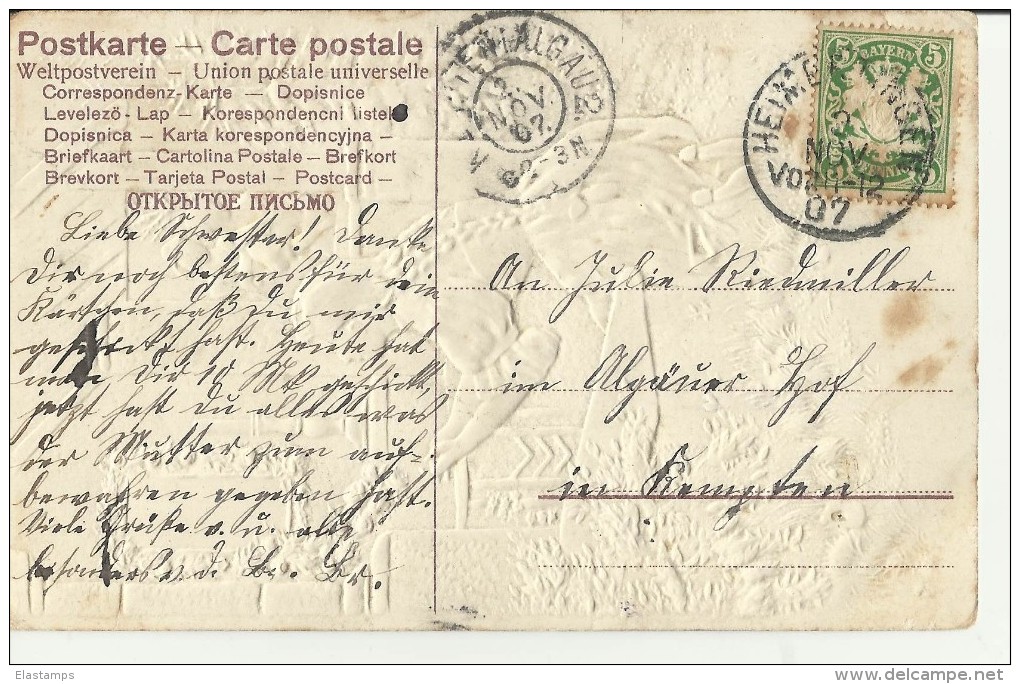 Postkarte — Carte postale
Weltpostverein – Union postale universelle
Correspondenz-Karte – Dopisnice
Levelező-Lap – Korespondencni listek
Dopisnica – Karta korespondencyjna –
Briefkaart – Cartolina Postale – Brefkort
Brevkort – Tarjeta Postal – Postcard –
ОТКРЫТОЕ ПИСЬМО
NOV. 07
2-3 N
BAYERN
5 5
NOV
VOR 11-12
07
Liebe Schwester! Danke
Dir noch bestens für dein
Kärtchen, daß Du mir
geschickt hast. Heute hat
man Dir 10 Mk geschickt,
jetzt hast du alles was
der Mutter zum auf-
bewahren gegeben hast.
Viele Grüße v. u. alle
besonders v. d. Br.
An Julie Riedmiller
im Algäuer Hof
in Kempten
Elastamps
delcampe.net